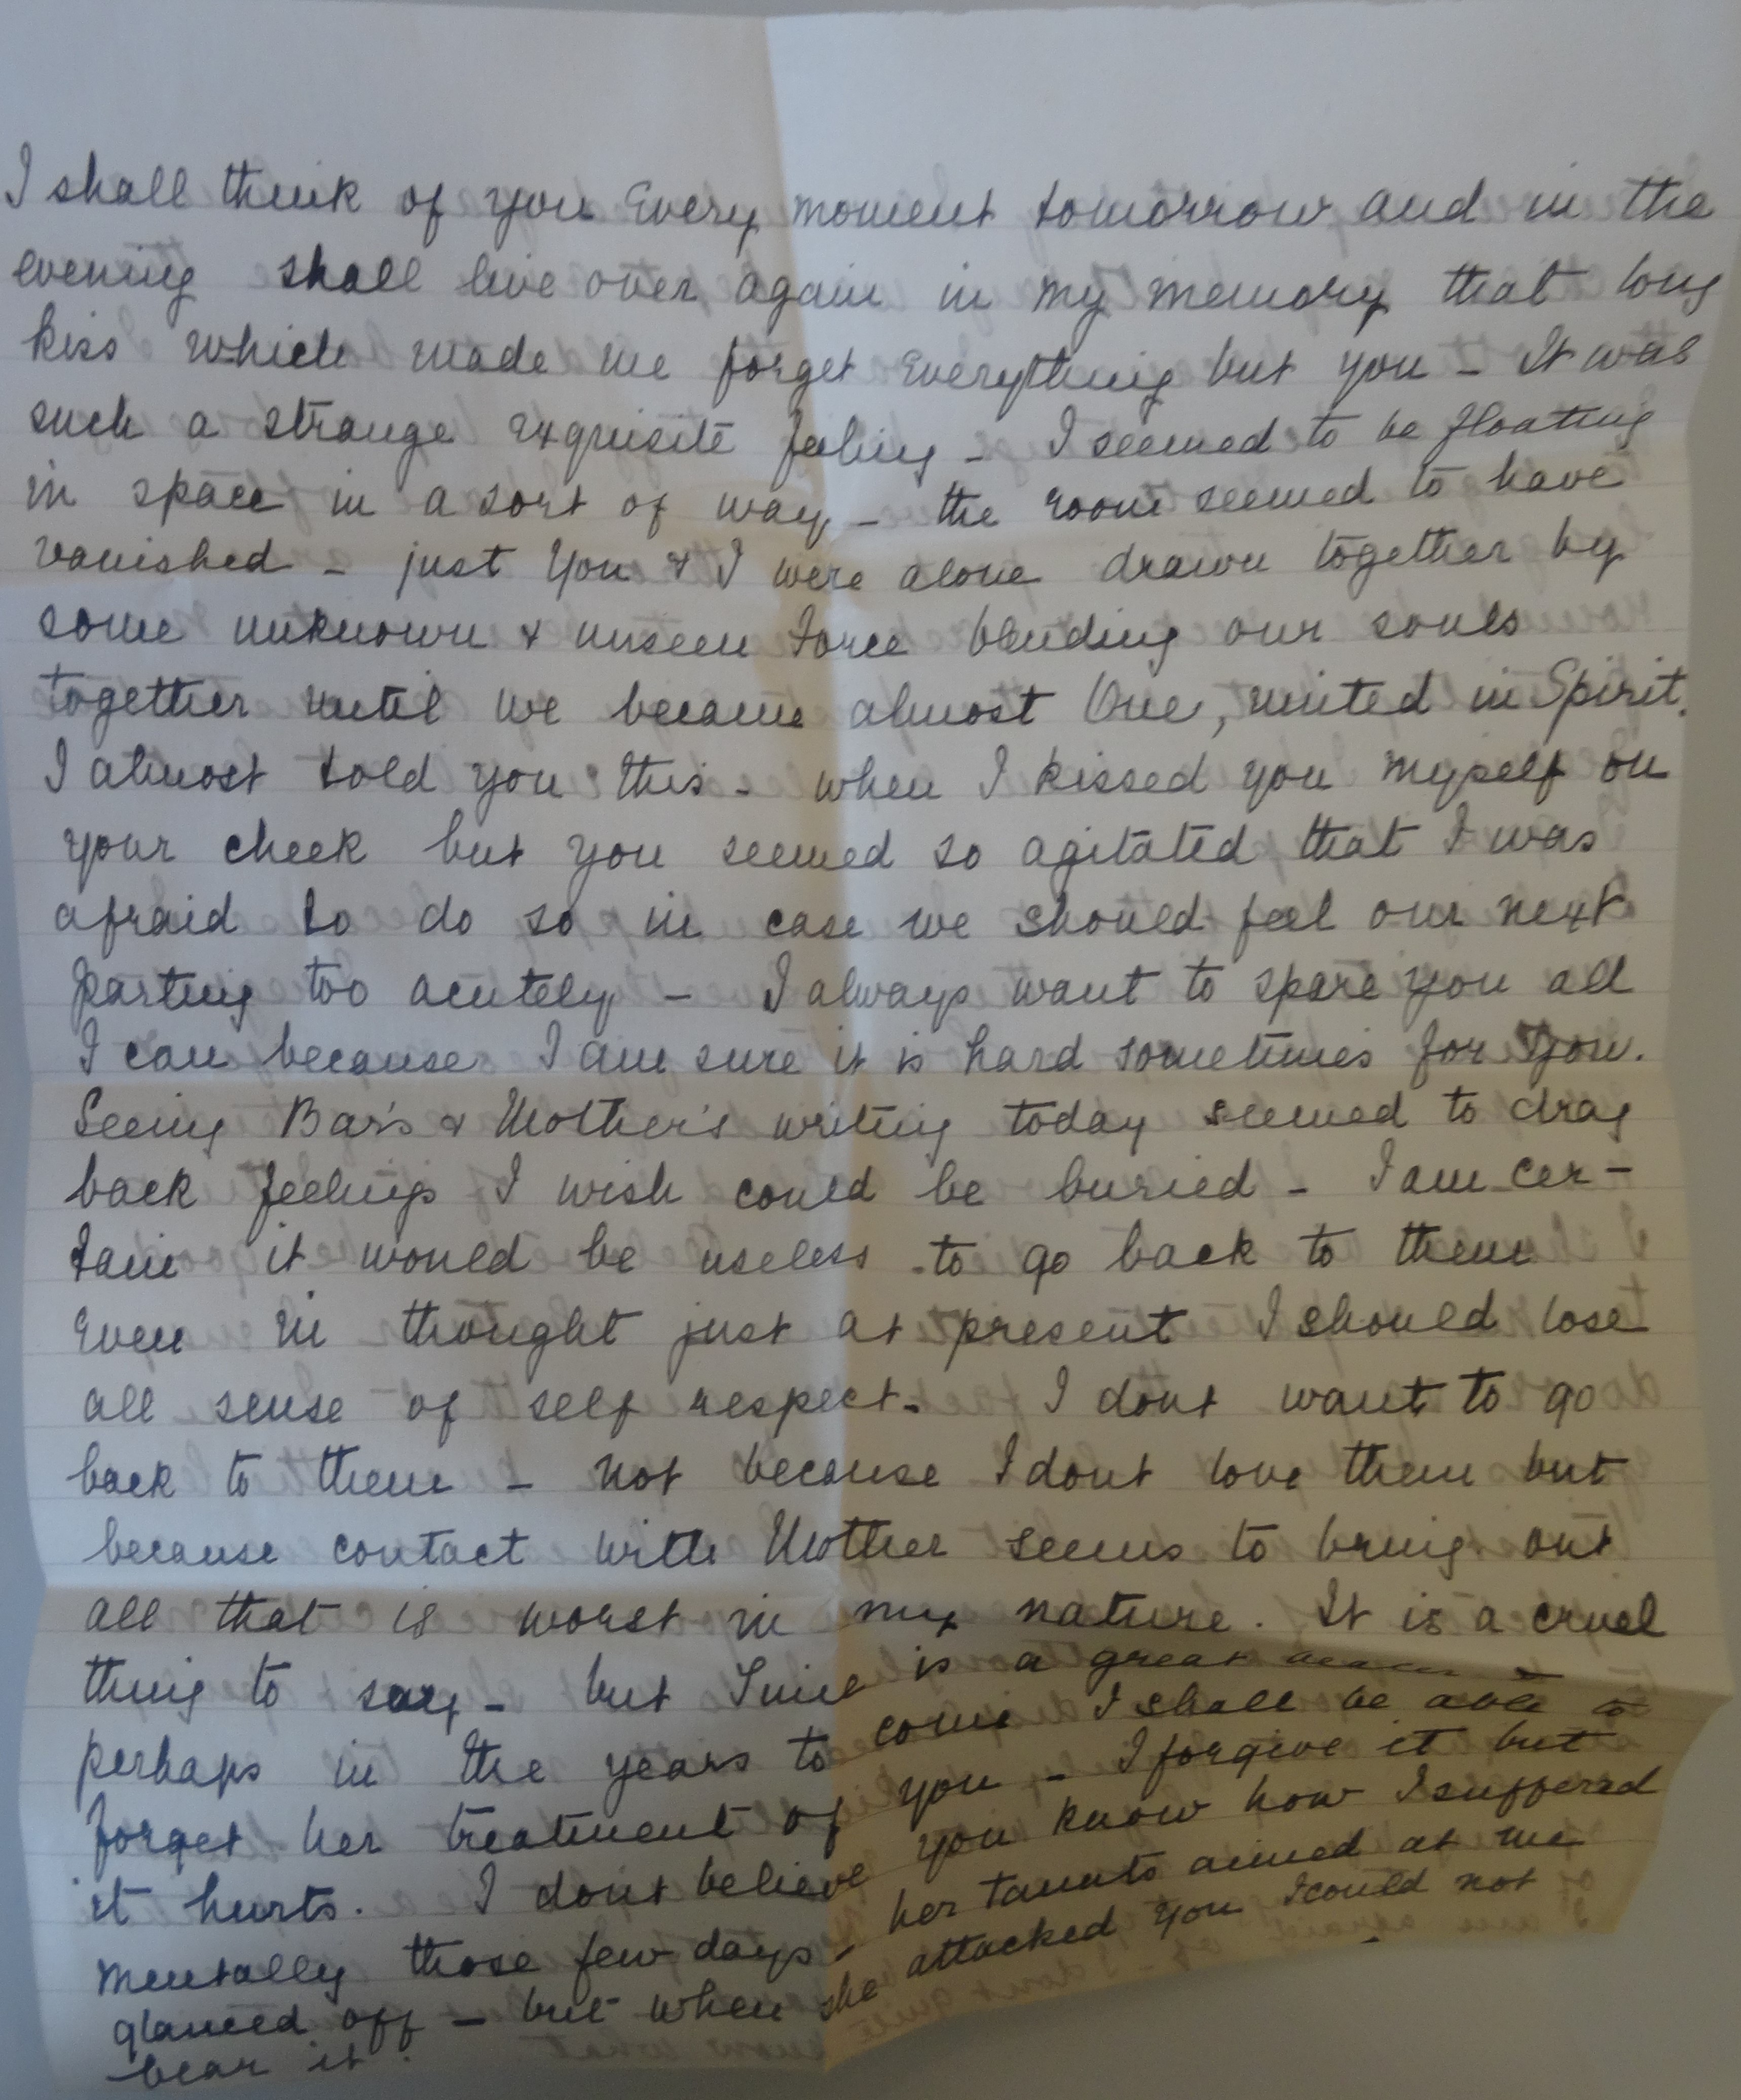 I shall think of you Every moment tomorrow and in the
evening shall live over again in my memory that long
kiss which made me forget Everything but you - It was
such a strange exquisite feeling - I seemed to be floating
in space in a sort of way - the room seemed to have
vanished - just you & I were alone drawn together by
some unknown & unseen Force blending our souls
together until we became almost One, united in Spirit.
I almost told you this - when I kissed you myself on
your cheek but you seemed so agitated that I was
afraid to do so in case we should feel our next
parting too acutely - I always want to spare you all
I can because I am sure it is hard sometimes for you.
Seeing Bar's & Mother's writing today seemed to drag
back feelings I wish could be buried - I am cer-
tain it would be useless to go back to them
even in thought just at present I should lose
all sense of self respect. I dont want to go
back to them - not because I dont love them but
because contact with Mother seems to bring out
all that is worst in my nature. It is a cruel
thing to say - but Time is a great
perhaps in the years to come I shall be able to
forget her treatment of you - I forgive it but
it hurts. I dont believe you know how I suffered
mentally those few days - her taunts aimed at me
glanced off - but when she attacked you I could not
bear it.